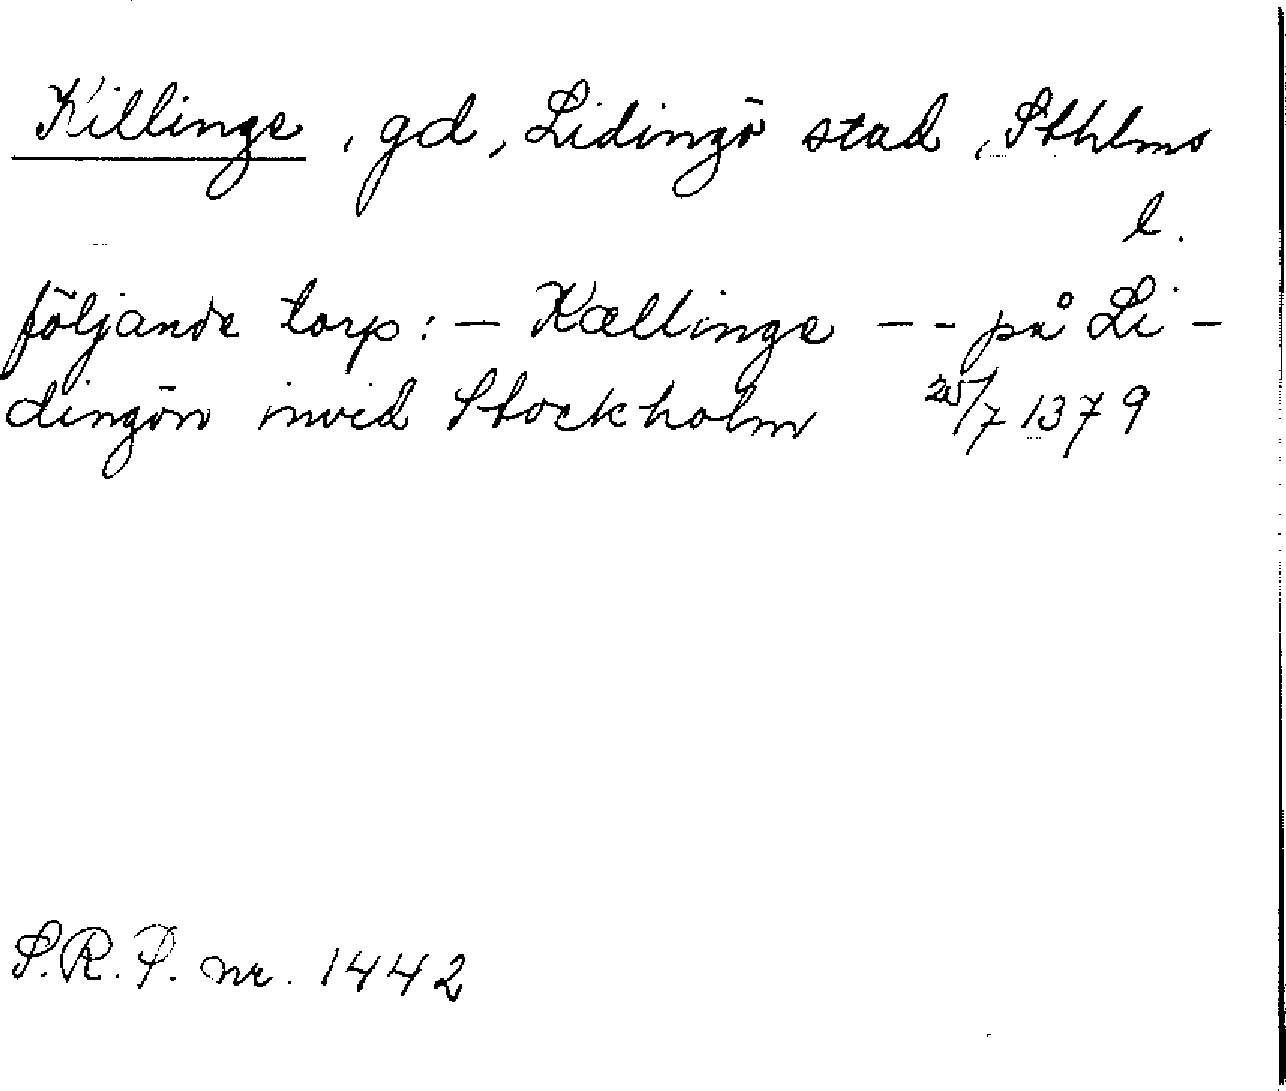 Killinge, gd, Lidingö stad, Sthlms
l.
följande torp: — Kællinge – - på Li-
dingön invid Stockholm 25/7 1379
S.R.P. nr. 1442